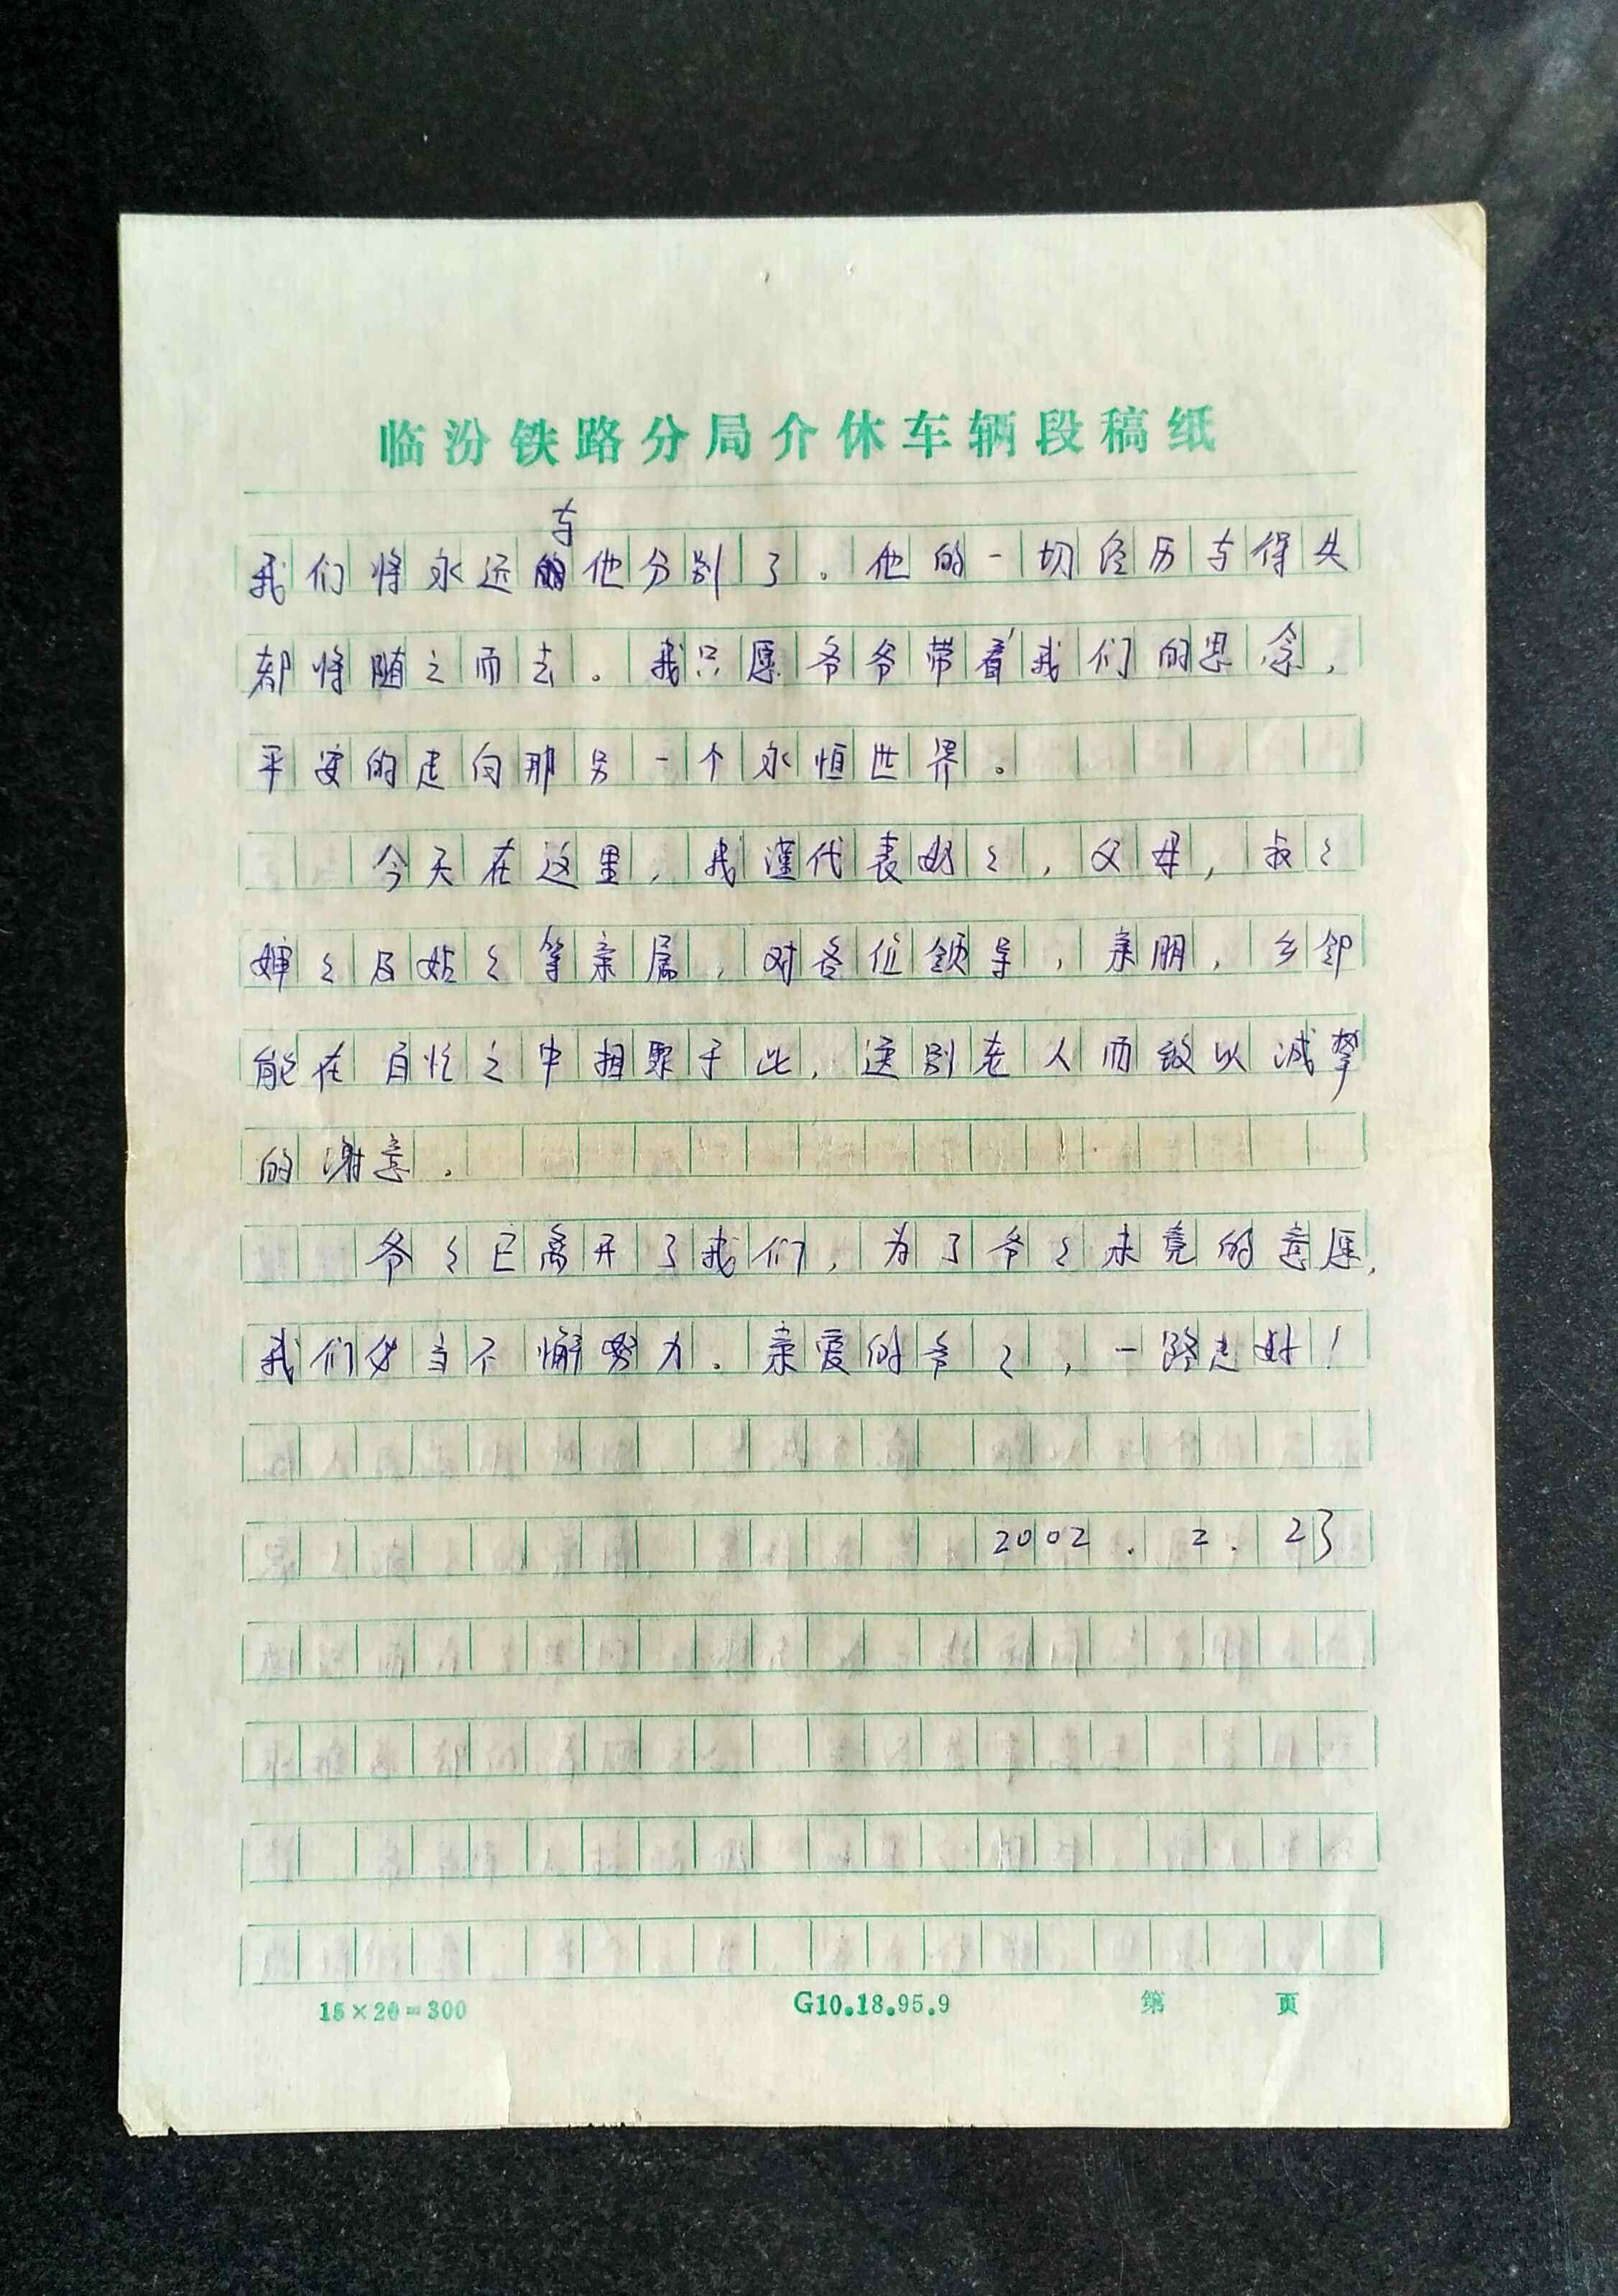 临汾铁路分局介休车辆段稿纸
与
我们将永远他分别了。他的一切经历与得失
都将随之而去。我只愿爷爷带着我们的思念,
平安的走向那另一个永恒世界。
今天在这里,我谨代表奶々,父母,叔々
婶々及姑々等亲属,对各位领导,亲朋,乡邻
能在百忙之中相聚于此,送别老人而致以诚挚
的谢意。
爷々已离开了我们,为了爷々未竟的意愿,
我们必当不懈努力。亲爱的爷々,一路走好!
2002.2.23
15×20=300 G10.18.95.9 第 页